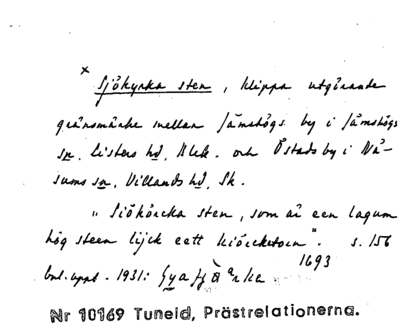 x
Sjökyrka sten, klippa utgörande
gränsmärke mellan Jämshögs by i Jämshögs
sn, Listers hd, Blek. och Östads by i Nä-
sums sn, Villands hd, Sk.
"Siökörcka sten, som är een lagum
hög steen lijck eett kiörcketorn". s. 156
1693
1931:
Nr 10169 Tuneld, Prästrelationerna.